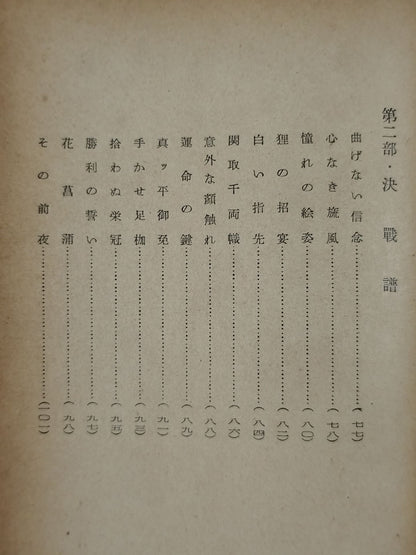 第二部・決戰譜
曲げない信念………（七七）
心なき旋風………（七八）
憧れの絵姿………（八〇）
狸の招宴………（八二）
白い指先………（八四）
関取千両幟………（八六）
意外な顔触れ………（八八）
運命の鍵………（八九）
真ッ平御免………（九一）
手かせ足枷………（九三）
拾わぬ栄冠………（九五）
勝利の誓い………（九七）
花菖蒲………（九八）
その前夜………（一〇一）